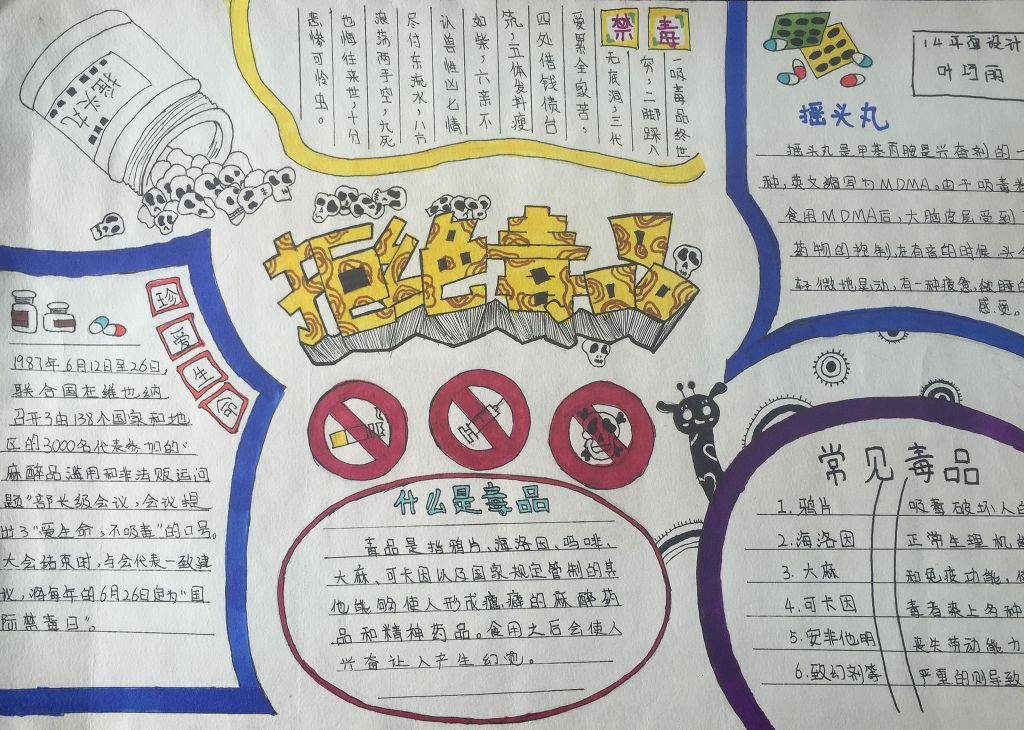 摇头丸
禁毒
一吸毒品终世
穷，二脚踩入
无底洞，三代
爱累全家苦，
四处借钱债台
筑，五体发抖瘦
如柴，六亲不
认兽性凶七情
尽付东流水，八方
浪荡两手空，九死
也悔往来世，十分
悲惨可怜虫。
14平面设计
叶巧丽
摇头丸
摇头丸是甲基丙胺是兴奋剂的一
种，英文缩写为MDMA。由于吸毒者
食用MDMA后，大脑皮层受到
药物的控制，在有音的时候，头会
轻微地晃动，有一种疲惫，欲睡的
感觉。
拒绝毒品
珍爱生命
1987年6月12日至26日，
联合国在维也纳
召开了由138个国家和地
区的3000名代表参加的“
麻醉品滥用和非法贩运问
题”部长级会议，会议提
出了“爱生命，不吸毒”的口号。
大会结束时，与会代表一致建
议，将每年的6月26日定为“国
际禁毒日”。
什么是毒品
毒品是指鸦片、海洛因、吗啡、
大麻、可卡因以及国家规定管制的其
他能够使人形成瘾癖的麻醉药
品和精神药品。食用之后会使人
兴奋让人产生幻觉。
常见毒品
1.鸦片
2.海洛因
3.大麻
4.可卡因
5.安非他明
6.致幻剂等
吸毒破坏人的
正常生理机能
和免疫功能，使
毒者染上各种
丧失劳动能力
严重的则导致